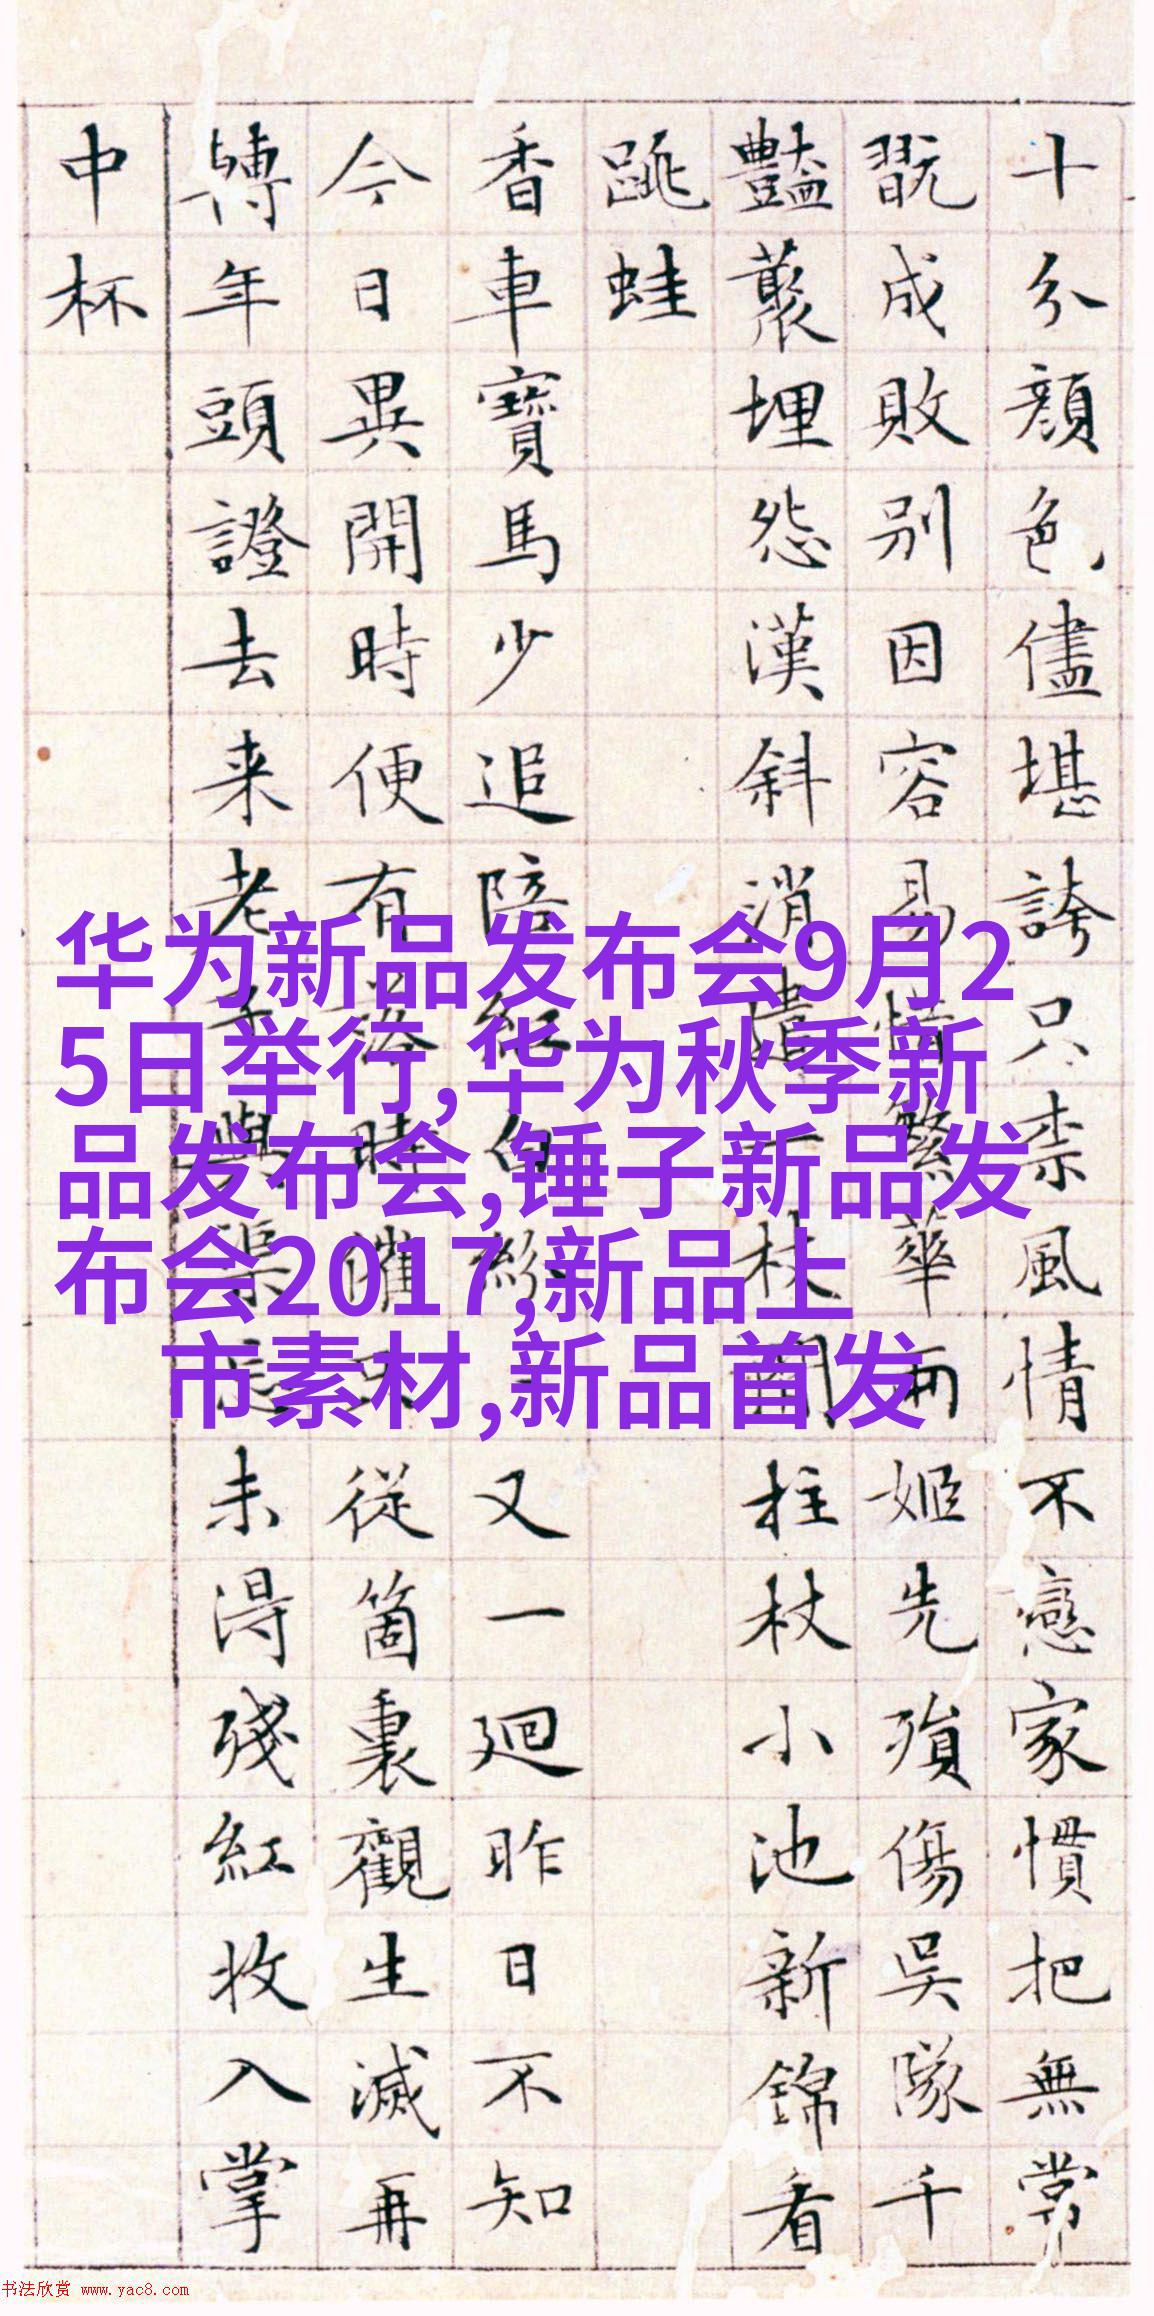 十分顔色儘堪誇只柰風情不戀家慣把無常
翫成敗別因容易情繁華兩姬先殞傷吳隊千
豔叢埋怨漢斜消遣一枝閒柱杖小池新錦看
跳蛙
香車寶馬少追陪紅白紛又一迴昨日不知
今日異開時便有落時催只從箇裏觀生滅再
轉年頭證去来老子與渠忘未得殘紅收入掌
中杯
华为新品发布会9月2
5日举行,华为秋季新
品发布会,锤子新品发
布会2017,新品上
市素材,新品首发
书法欣赏 www.yac8.com